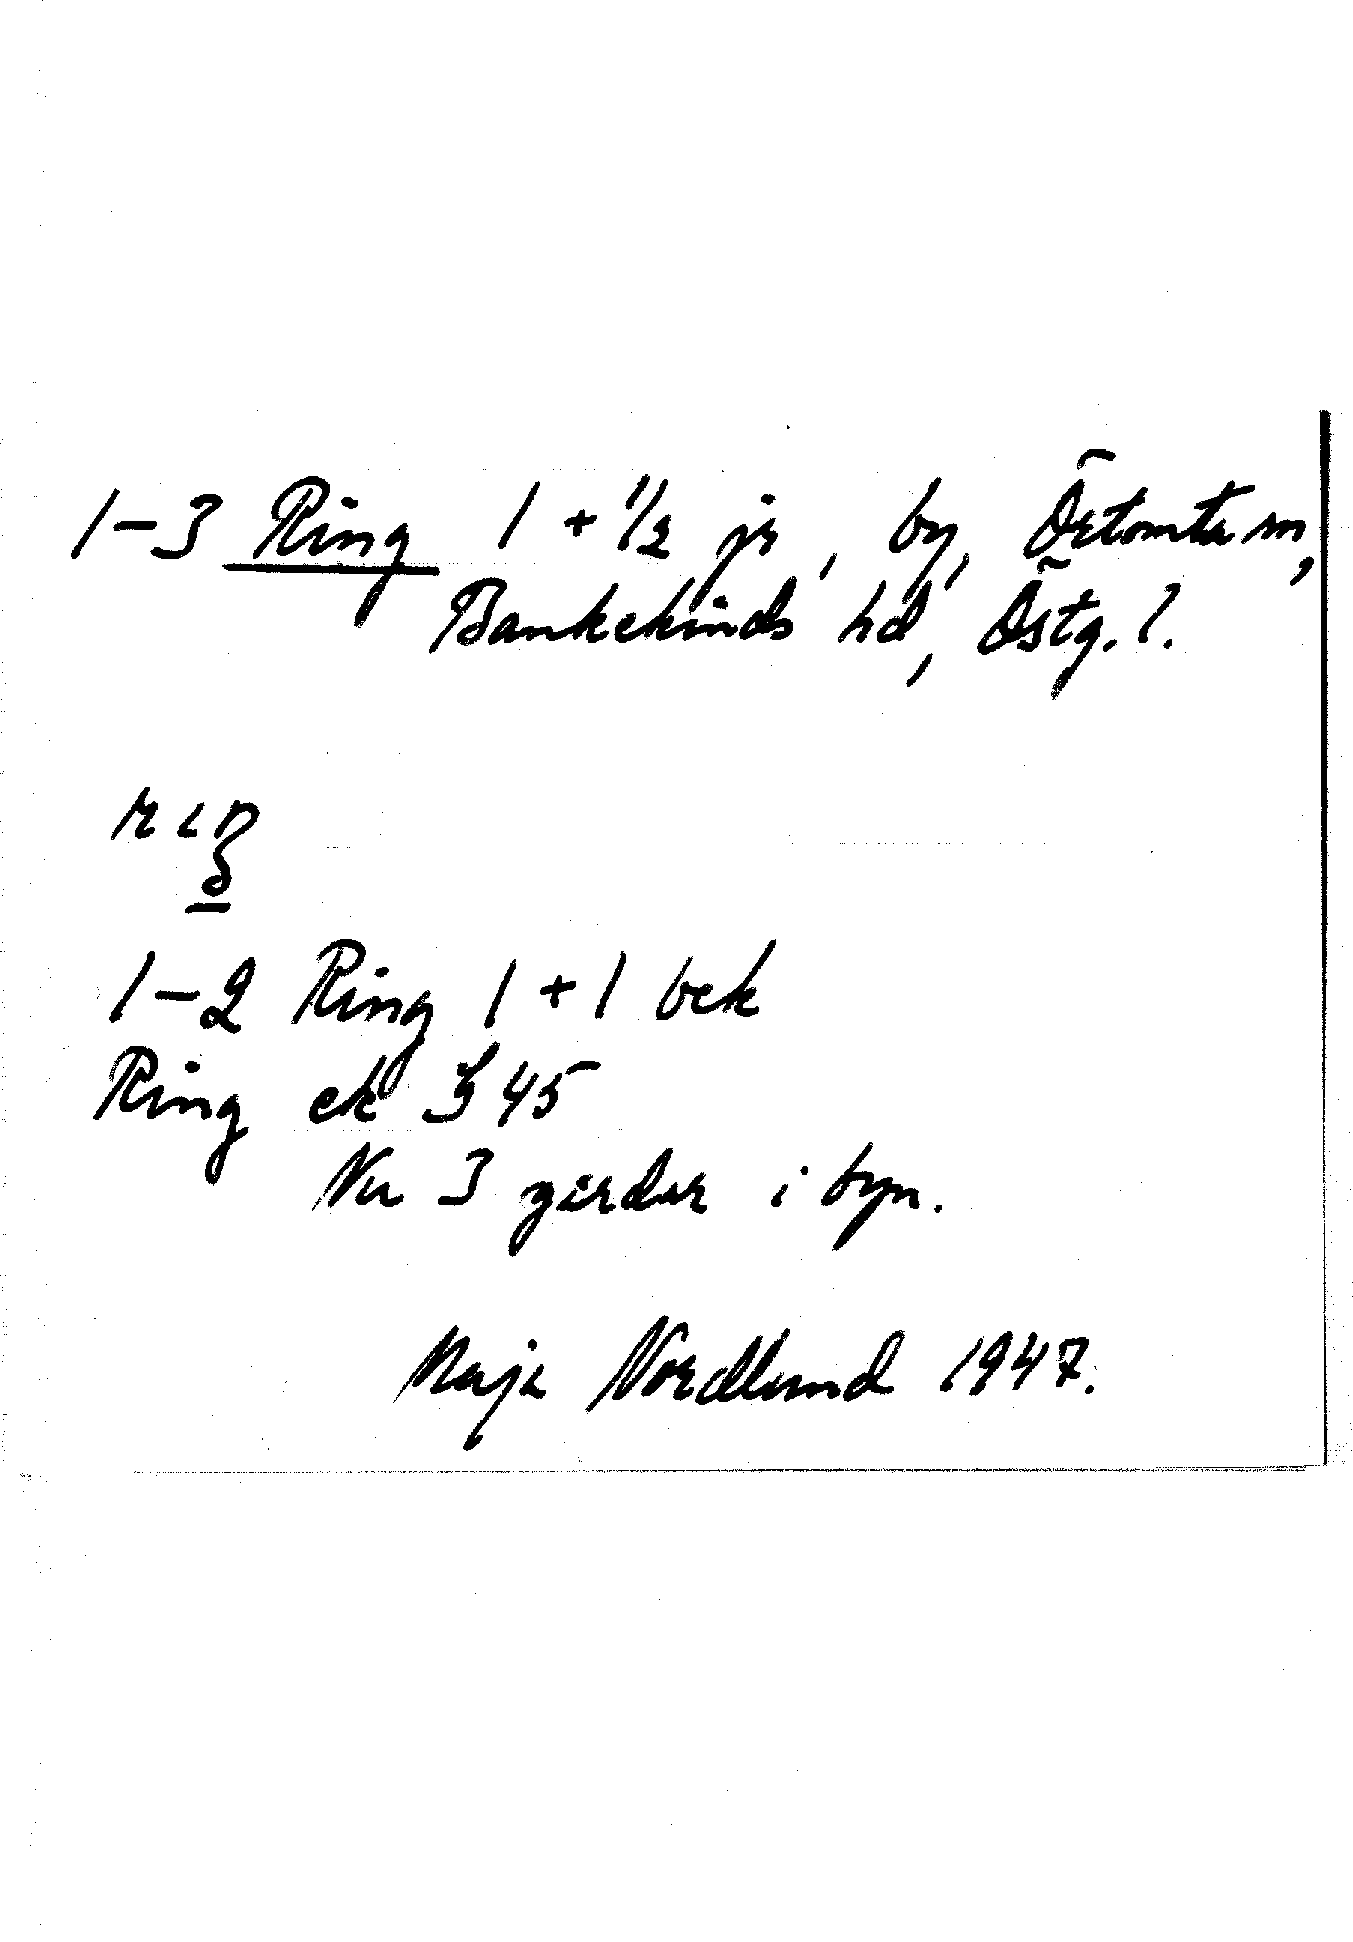 1-3 Ring 1 + 1/2 jr, by, Örtomta sn,
Bankekinds hd, Östg. l.
1-2 Ring 1 + 1 bek
Ring ek 3 45
Nu 3 gårdar i byn.
Maja Nordlund 1947.